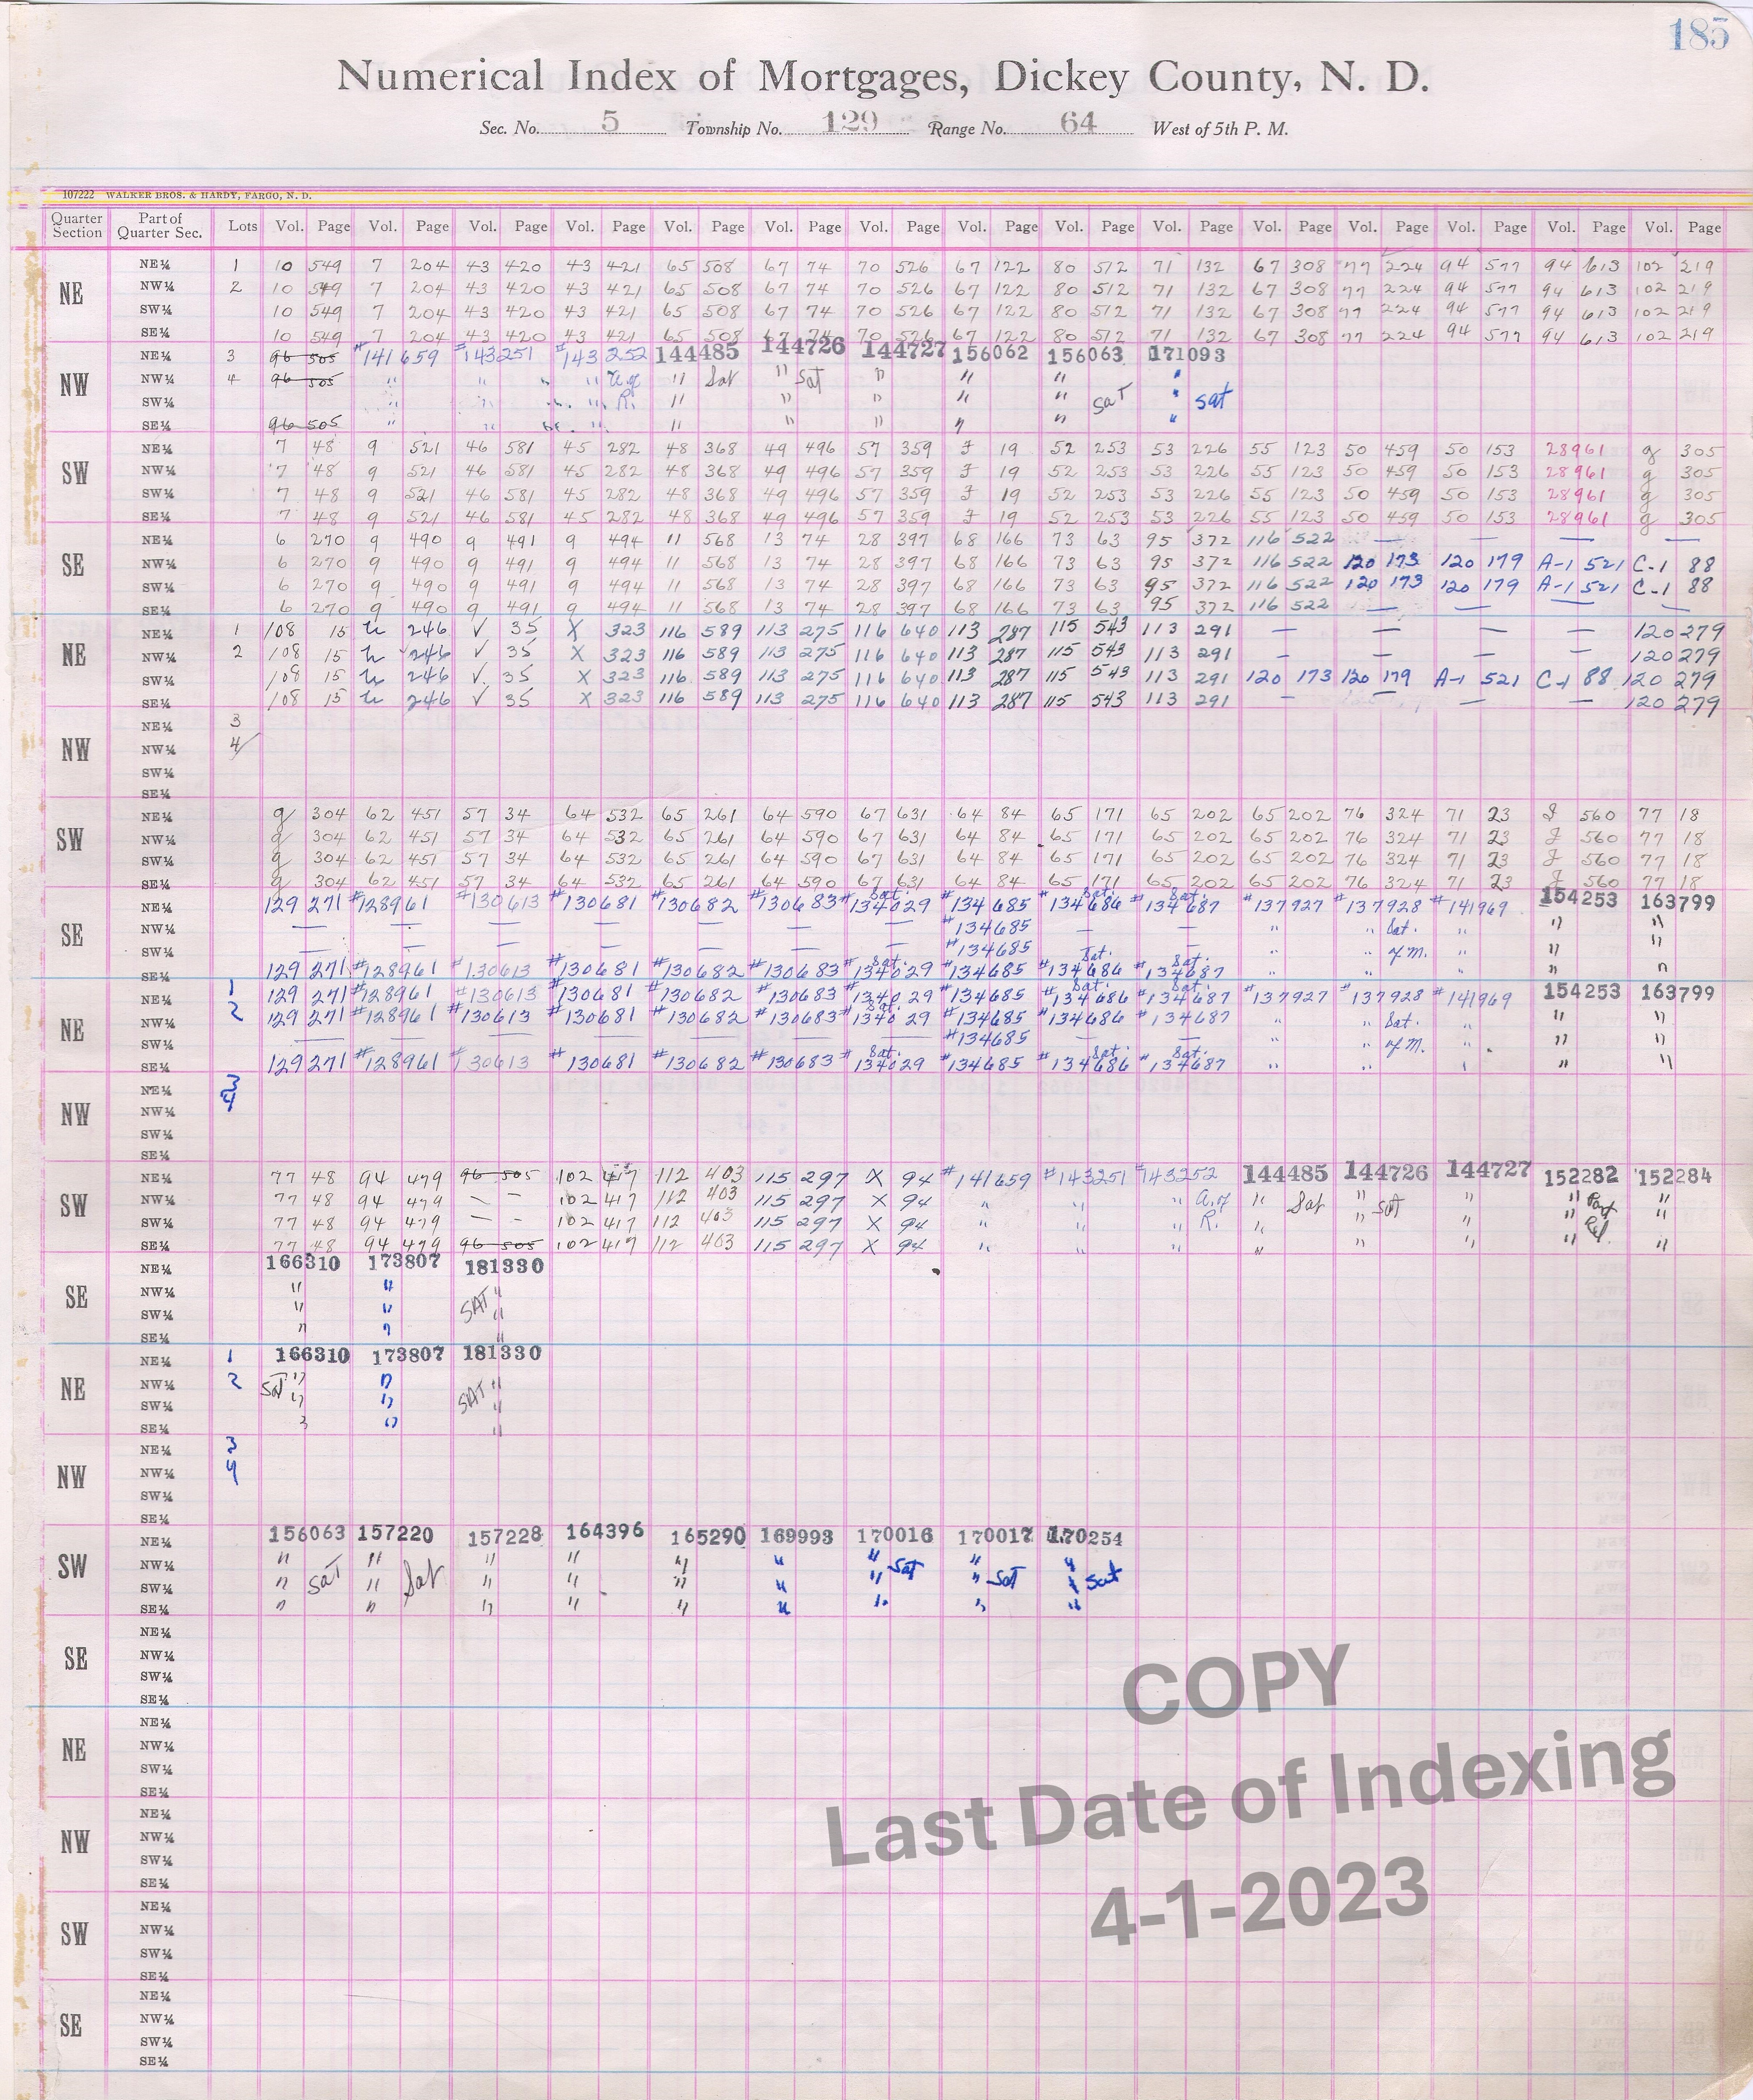 185
Numerical Index of Mortgages, Dickey County, N. D.
Sec. No. 5 Township No. 129 Range No. 64 West of 5th P. M.
107222 WALKER BROS. & HARDY, FARGO, N. D.
Quarter Section Part of Quarter Sec. Lots Vol. Page Vol. Page Vol. Page Vol. Page Vol. Page Vol. Page Vol. Page Vol. Page Vol. Page Vol. Page Vol. Page Vol. Page Vol. Page Vol. Page Vol. Page
NE
NE¼ 1 10 549 7 204 43 420 43 421 65 508 67 74 70 526 67 122 80 512 71 132 67 308 77 224 94 577 94 613 102 219
NW¼ 2 10 549 7 204 43 420 43 421 65 508 67 74 70 526 67 122 80 512 71 132 67 308 77 224 94 577 94 613 102 219
SW¼ 10 549 7 204 43 420 43 421 65 508 67 74 70 526 67 122 80 512 71 132 67 308 77 224 94 577 94 613 102 219
SE¼ 10 549 7 204 43 420 43 421 65 508 67 74 70 526 67 122 80 512 71 132 67 308 77 224 94 577 94 613 102 219
NW
NE¼ 3 96 505 #141659 #143251 #143252 144485 144726 144727 156062 156063 171093
NW¼ 4 96 505 " " " " A. of " Sat " Sat " " " "
SW¼ " " " " R. " " " " " Sat " Sat
SE¼ 96 505 " " " " " " " " "
SW
NE¼ 7 48 9 521 46 581 45 282 48 368 49 496 57 359 J 19 52 253 53 226 55 123 50 459 50 153 28961 g 305
NW¼ 7 48 9 521 46 581 45 282 48 368 49 496 57 359 J 19 52 253 53 226 55 123 50 459 50 153 28961 g 305
SW¼ 7 48 9 521 46 581 45 282 48 368 49 496 57 359 J 19 52 253 53 226 55 123 50 459 50 153 28961 g 305
SE¼ 7 48 9 521 46 581 45 282 48 368 49 496 57 359 J 19 52 253 53 226 55 123 50 459 50 153 28961 g 305
SE
NE¼ 6 270 9 490 9 491 9 494 11 568 13 74 28 397 68 166 73 63 95 372 116 522 — — — —
NW¼ 6 270 9 490 9 491 9 494 11 568 13 74 28 397 68 166 73 63 95 372 116 522 120 173 120 179 A-1 521 C-1 88
SW¼ 6 270 9 490 9 491 9 494 11 568 13 74 28 397 68 166 73 63 95 372 116 522 120 173 120 179 A-1 521 C-1 88
SE¼ 6 270 9 490 9 491 9 494 11 568 13 74 28 397 68 166 73 63 95 372 116 522 — — — —
NE
NE¼ 1 108 15 246 V 35 X 323 116 589 113 275 116 640 113 287 115 543 113 291 — — — — 120 279
NW¼ 2 108 15 246 V 35 X 323 116 589 113 275 116 640 113 287 115 543 113 291 — — — — 120 279
SW¼ 108 15 246 V 35 X 323 116 589 113 275 116 640 113 287 115 543 113 291 120 173 120 179 A-1 521 C-1 88 120 279
SE¼ 108 15 246 V 35 X 323 116 589 113 275 116 640 113 287 115 543 113 291 — — — — 120 279
NW
NE¼ 3
NW¼ 4
SW¼
SE¼
SW
NE¼ g 304 62 451 57 34 64 532 65 261 64 590 67 631 64 84 65 171 65 202 65 202 76 324 71 23 J 560 77 18
NW¼ g 304 62 451 57 34 64 532 65 261 64 590 67 631 64 84 65 171 65 202 65 202 76 324 71 23 J 560 77 18
SW¼ g 304 62 451 57 34 64 532 65 261 64 590 67 631 64 84 65 171 65 202 65 202 76 324 71 23 J 560 77 18
SE¼ g 304 62 451 57 34 64 532 65 261 64 590 67 631 64 84 65 171 65 202 65 202 76 324 71 23 J 560 77 18
SE
NE¼ 129 271 #128961 #130613 #130681 #130682 #130683 #134029 Sat. #134685 #134686 Sat. #134687 Sat. #137927 #137928 #141969 154253 163799
NW¼ — — — — — — — #134685 — — " " Sat. " " "
SW¼ — — — — — — — #134685 " " of M. " " "
SE¼ 129 271 #128961 #130613 #130681 #130682 #130683 #134029 Sat. #134685 #134686 Sat. #134687 Sat. " " " " "
NE
NE¼ 1 129 271 #128961 #130613 #130681 #130682 #130683 #134029 #134685 #134686 Sat. #134687 Sat. #137927 #137928 #141969 154253 163799
NW¼ 2 129 271 #128961 #130613 #130681 #130682 #130683 #134029 Sat. #134685 #134686 #134687 " " Sat. " " "
SW¼ — — — — — — — #134685 — — " " of M. " " "
SE¼ 129 271 #128961 #130613 #130681 #130682 #130683 #134029 Sat. #134685 #134686 Sat. #134687 Sat. " " " " "
NW
NE¼ 3
NW¼ 4
SW¼
SE¼
SW
NE¼ 77 48 94 479 96 505 102 417 112 403 115 297 X 94 #141659 #143251 #143252 144485 144726 144727 152282 152284
NW¼ 77 48 94 479 — — 102 417 112 403 115 297 X 94 " " " A. of " Sat " Sat " " Part "
SW¼ 77 48 94 479 — — 102 417 112 403 115 297 X 94 " " " R. " " " " Rel. "
SE¼ 77 48 94 479 96 505 102 417 112 403 115 297 X 94 " " " " " " " "
SE
NE¼ 166310 173807 181330
NW¼ " " "
SW¼ " " SAT "
SE¼ " " "
NE
NE¼ 1 166310 173807 181330
NW¼ 2 Sat " " SAT "
SW¼ " " "
SE¼ " " "
NW
NE¼ 3
NW¼ 4
SW¼
SE¼
SW
NE¼ 156063 157220 157228 164396 165290 169993 170016 170017 170254
NW¼ " " " " " " " Sat " "
SW¼ " Sat " Sat " " " " " " Sat " Sat
SE¼ " " " " " " " " "
SE
NE¼
NW¼
SW¼
SE¼
NE
NE¼
NW¼
SW¼
SE¼
NW
NE¼
NW¼
SW¼
SE¼
SW
NE¼
NW¼
SW¼
SE¼
SE
NE¼
NW¼
SW¼
SE¼
COPY
Last Date of Indexing
4-1-2023